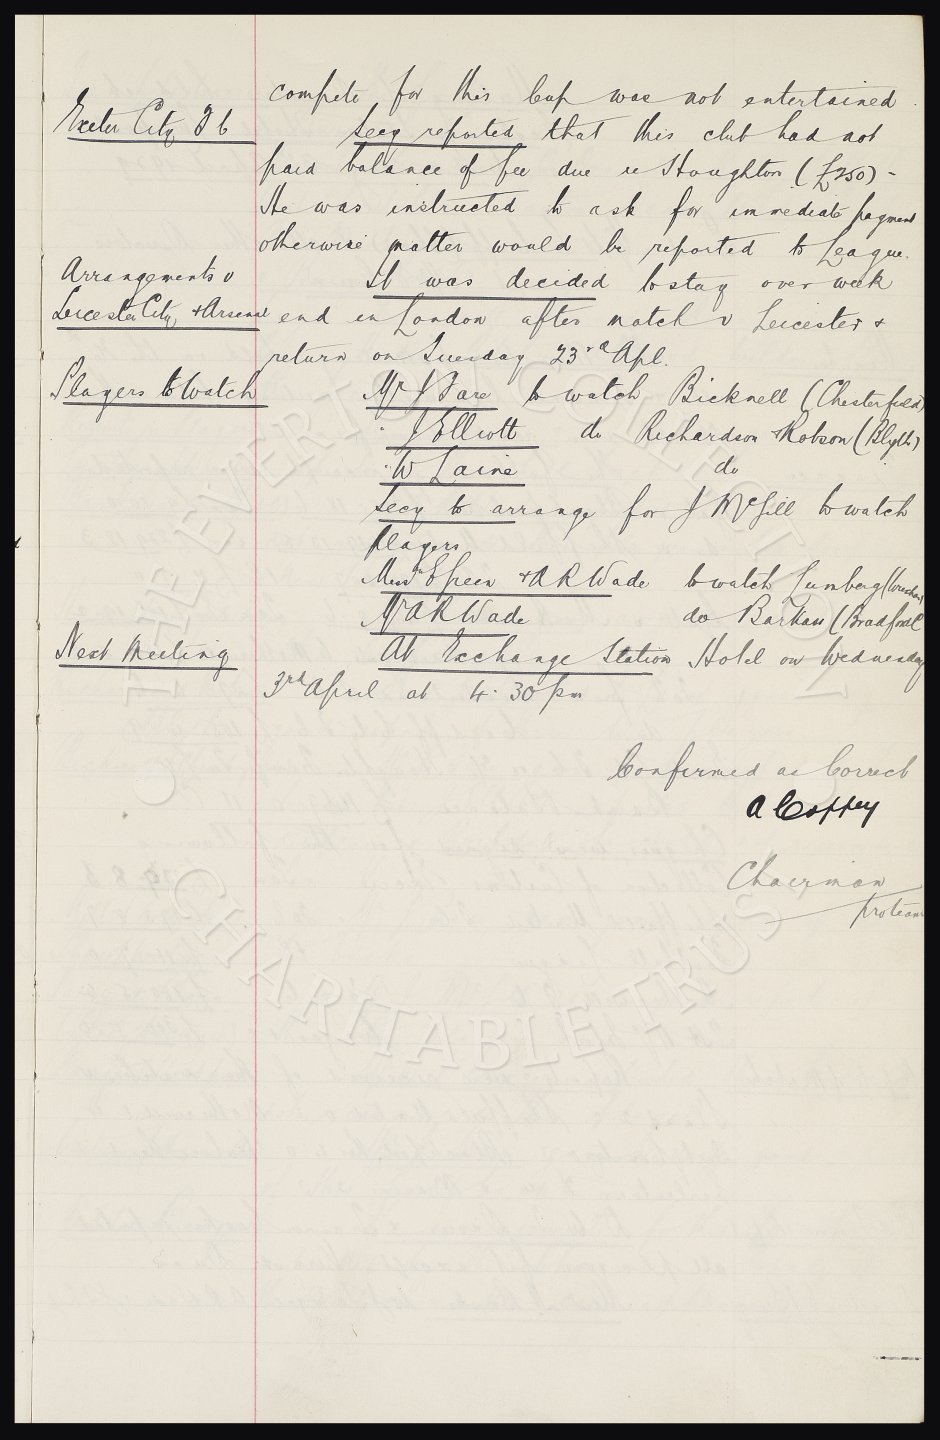 compete for this Cup was not entertained.
Exeter City F C
Secy reported that this club had not
paid balance of fee due re Houghton (£250) -
He was instructed to ask for immediate payment
otherwise matter would be reported to League.
Arrangements v
Leicester City & Arsenal
It was decided to stay over week
end in London after match v Leicester &
return on Tuesday 23rd Apl.
Players to Watch
Mr J Fare to watch Bicknell (Chesterfield)
" J Elliott do Richardson & Robson (Blyth)
" W Laine do
Secy to arrange for J McGill to watch
players
Messrs E Green & A R Wade to watch Lumberg (Wrexham)
Mr A R Wade do Barkas (Bradford C
Next Meeting
At Exchange Station Hotel on Wednesday
3rd April at 4.30 pm
Confirmed as Correct
A Coffey
Chairman
protem
THE EVERTON COLLECTION
CHARITABLE TRUST